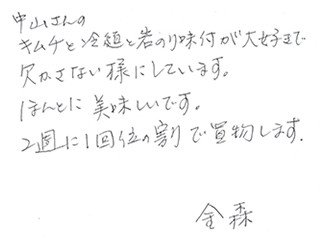 中山さんの
キムチと冷麺と岩のり味付が大好きで
欠かさない様にしています。
ほんとに美味しいです。
2週に1回位の割りで買物します.
金森